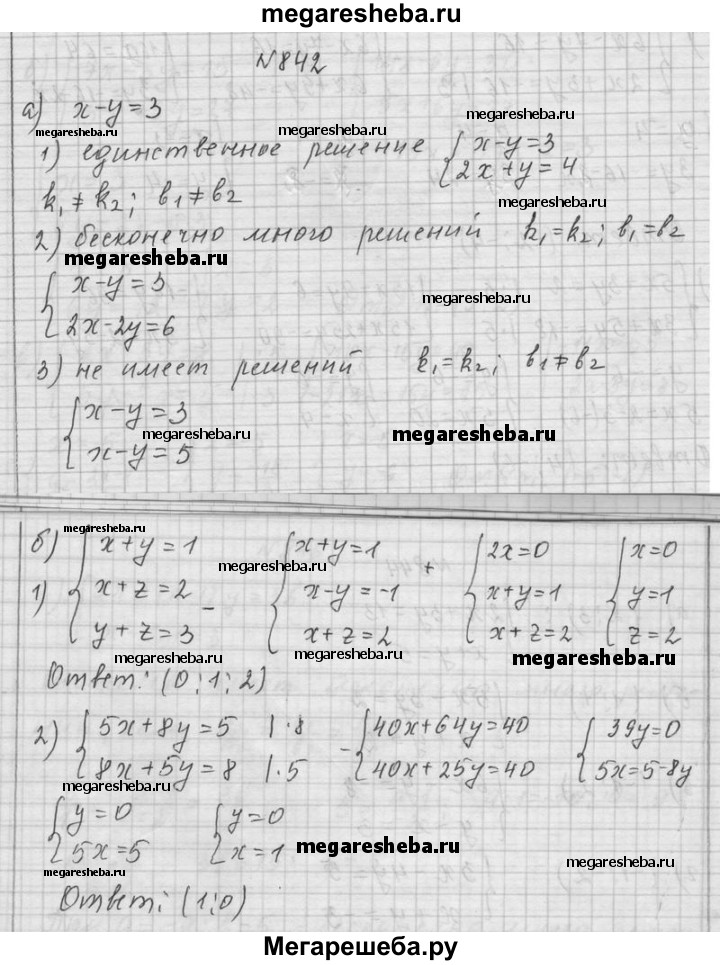 megaresheba.ru
№842
а) x-y=3
megaresheba.ru
megaresheba.ru
1) единственное решение { x-y=3
2x+y=4
megaresheba.ru
k₁≠k₂; b₁≠b₂
2) бесконечно много решений k₁=k₂; b₁=b₂
megaresheba.ru
{ x-y=3
2x-2y=6
megaresheba.ru
3) не имеет решений k₁=k₂; b₁≠b₂
{ x-y=3
x-y=5
megaresheba.ru
megaresheba.ru
megaresheba.ru
б) 1) { x+y=1
x+z=2
y+z=3 -
{ x+y=1
x-y=-1
x+z=2 +
{ 2x=0
x+y=1
x+z=2
{ x=0
y=1
z=2
megaresheba.ru
megaresheba.ru
megaresheba.ru
megaresheba.ru
megaresheba.ru
Ответ: (0;1;2)
2) { 5x+8y=5 |·8
8x+5y=8 |·5
- { 40x+64y=40
40x+25y=40
{ 39y=0
5x=5-8y
megaresheba.ru
{ y=0
5x=5
{ y=0
x=1
megaresheba.ru
megaresheba.ru
megaresheba.ru
Ответ: (1;0)
Мегарешеба.ру